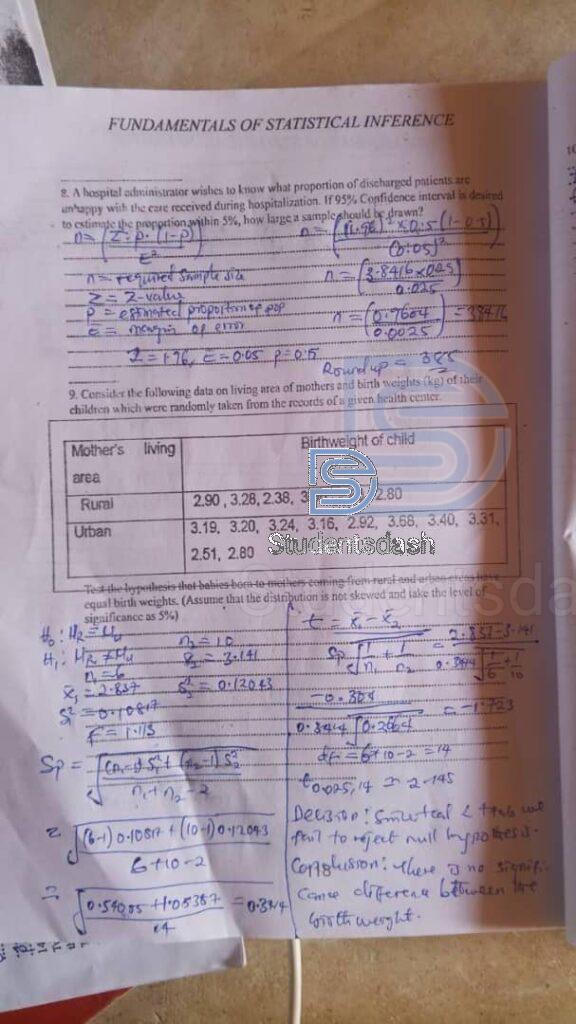 FUNDAMENTALS OF STATISTICAL INFERENCE
8. A hospital administrator wishes to know what proportion of discharged patients are
unhappy with the care received during hospitalization. If 95% Confidence interval is desired
to estimate the proportion within 5%, how large a sample should be drawn?
n = (Z² · P · (1-P) / E²)
n = required sample size
Z = Z-value
P = estimated proportion of pop
e = margin of error
Z = 1.96, E = 0.05 P = 0.5
n = ((1.96)² × 0.5 (1-0.5) / (0.05)²)
n = (3.8416 × 0.25 / 0.025)
n = (0.9604 / 0.0025) = 384.16
Round up = 385
9. Consider the following data on living area of mothers and birth weights (kg) of their
children which were randomly taken from the records of a given health center.
Mother's living area
Birthweight of child
Rural
2.90 , 3.28, 2.38, 2.80
Urban
3.19, 3.20, 3.24, 3.16, 2.92, 3.68, 3.40, 3.31,
2.51, 2.80
Studentsdash
Test the hypothesis that babies born to mothers coming from rural and urban areas have
equal birth weights. (Assume that the distribution is not skewed and take the level of
significance as 5%)
H₀ : μR = μu
H₁ : μR ≠ μu
n₁ = 6
x̄₁ = 2.837
S₁² = 0.10817
F = 1.113
n₂ = 10
x̄₂ = 3.141
S₂² = 0.12043
Sp = √((n₁-1)S₁² + (n₂-1)S₂² / n₁ + n₂ - 2)
= √((6-1) 0.10817 + (10-1) 0.12043 / 6+10-2)
= √(0.54085 + 1.08387 / 14) = 0.3414
t = x̄₁ - x̄₂ / Sp √(1/n₁ + 1/n₂) = 2.837-3.141 / 0.3414 √(1/6 + 1/10)
-0.304 / 0.3414 √0.2664 = -1.723
df = 6+10-2 = 14
t0.025, 14 = 2.145
Decision: Since tcal < ttab we
fail to reject null hypothesis.
Conclusion: there is no signifi-
cance difference between the
birthweight.